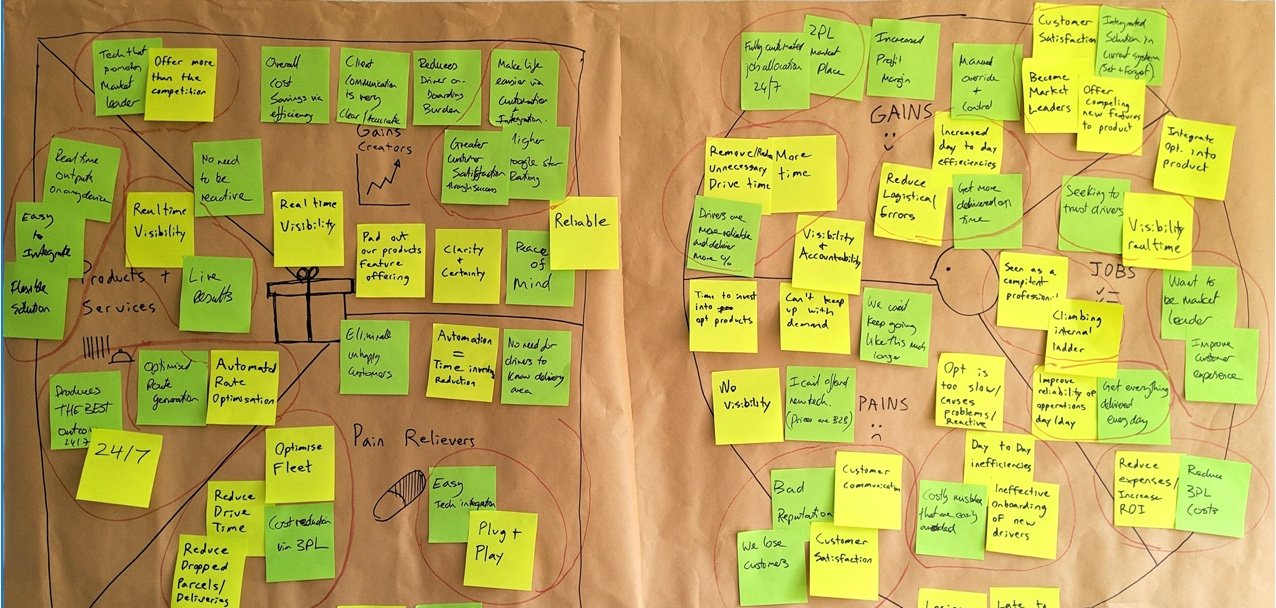 Tech that
promotes
Market
leader
Offer more
than the
competition
Overall
cost
Savings via
efficiency
Client
communication
is very
Clear/Accurate
Reduces
Driver on-
boarding
Burden
Make life
easier via
Automation
+
Integration.
Gains
Creators
Greater
Customer
Satisfaction
through success
Higher
google star
Rating
Real time
outputs
on any device
No need
to be
reactive
Easy
to
Integrate
Real time
Visibility
Real time
Visibility
Pad out
our products
feature
offering
Clarity +
Certainty
Peace
of
Mind
Reliable
Flexible
Solution
Products +
Services
Live
Results
Eliminate
unhappy
Customers
Automation
=
Time investment
Reduction
No need for
drivers to
know delivery
area
Optimised
Route
Generation
Automated
Rate
Optimisation
Produces
THE BEST
24/7
24/7
Pain Relievers
Optimise
Fleet
Reduce
Drive
Time
Cost reduction
via 3PL
Reduce
Dropped
Parcels/
Deliveries
Easy
Tech integration
Plug +
Play
Fully automated
job allocation
24/7
3PL
Market
Place
Increased
Profit
Margin
Manual
override
+
Control
Customer
Satisfaction
Integrated
Solution in
current system
(Set + Forget)
Become
Market
Leaders
Offer
competing
new features
to product
GAINS
Integrate
Opt. into
product
Increased
day to day
efficiencies
Unnecessary
Drive time
More
time
Reduce
Logistical
Errors
Get more
delivered on
time
Seeking to
trust drivers
Visibility
real time
Drivers are
more reliable
and deliver
more %
Visibility
+
Accountability
JOBS
Seen as a
competent
professional
Want to
be market
leader
Time to invest
into
opt products
Can't keep
up with
demand
We can't
keep going
like this much
longer
Climbing
internal
ladder
Improve
customer
experience
No
Visibility
I can't afford
new tech
PAINS
Opt is
too slow/
causes
problems/
Reactive
Improve
reliability of
opperations
day/day
Get everything
delivered
every day
Day to Day
inefficiencies
Bad
Reputation
Customer
communication
Costly mistakes
that are easily
avoided
Ineffective
onboarding
of new
drivers
Reduce
expenses/
Increase
ROI
Reduce
3PL
Costs
We lose
customers
Customer
Satisfaction
Late to